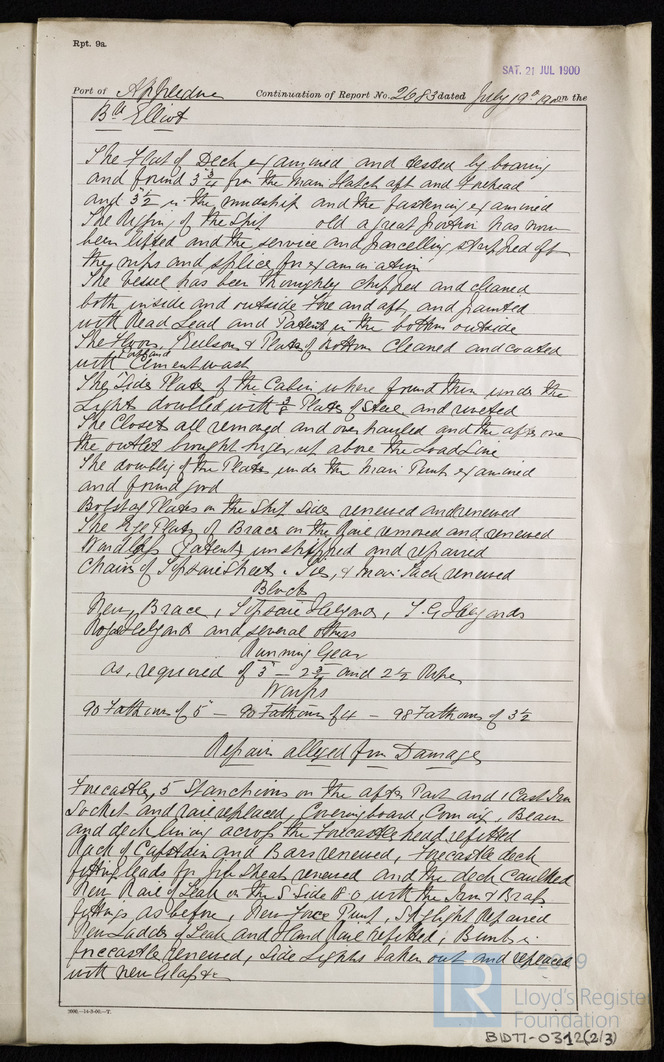 Rpt. 9a.
SAT. 21 JUL 1900
Port of Appledore Continuation of Report No. 2683 dated July 19th 1900 on the
Bk Elliot
The Flat of Deck examined and tested by boring
and found 3 3/4 from the Main Hatch aft and Forehead
and 3 1/2 in the midship and the fastening examined
The Rigging of the Ship old a great portion has now
been lifted and the service and parcelling stripped off
the nips and splice for examination
The Vessel has been thoroughly chipped and cleaned
both inside and outside Fore and aft, and painted
with Read Lead and Patent in the bottom outside
The Floors, Keelson & Plates of Bottom Cleaned and coated
with Cement wash
The Sides Plates of the Cabin where found thin under the
Lights doubled with 3/8 Plates of Steel and riveted
The Closets all removed and overhauled and the after one
the outlet brought higher up above the Load Line
The doubling of the Plates under the Main Pumps examined
and found good
Bobstay Plates on the Ship sides renewed and renewed
The Eye Plates of Braces on the Rails removed and renewed
Windlass (Patent) unshipped and repaired
Chains of Topsail Sheets, Ties, & Main Tack renewed
Blocks
New, Brace, Topsail Halyards, T. G. Halyards
Royal Halyards and several others
Running Gear
as, required of 3" - 2 3/4 and 2 1/2 Rope
Warps
90 Fathoms of 5" - 90 Fathoms of 4 - 98 Fathoms of 3 1/2
Repairs alleged from Damage
Forecastle, 5 Stanchions on the after Part and 1 Cast Iron
Socket and rail replaced, Covering board, Coming, Beam
and deck lining across the Forecastle head refitted
Rack of Capstan and Bars renewed, Forecastle deck
fitting leads for Jib Sheets renewed and the deck Caulked
New Rail of Teak on the S Side with the Iron & Brass
fittings as before, New Force Pump, Skylight Repaired
New Ladder of Teak and Hand Rail refitted, Bunks in
forecastle renewed, Side Lights taken out and replaced
with new Glass &c
3000.—14-3-00.—T.
© 2019
LR
Lloyd's Register
Foundation
BIDTT-0312(2/3)